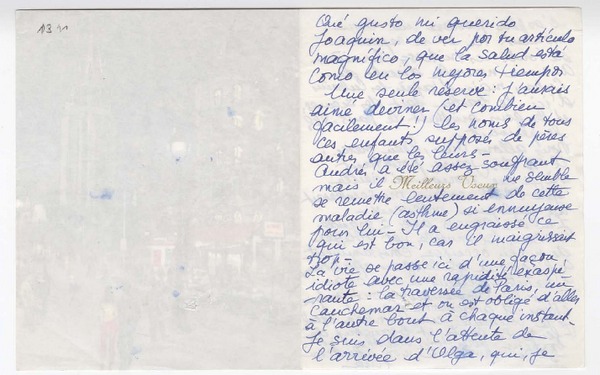 13 11
Qué gusto mi querido
Joaquin, de ver por tu articulo
magnífico, que la salud está
como en los mejores tiempos
Une seule réserve : j'aurais
aimé deviner (et combien
facilement!) les noms de tous
ces enfants supposés de pères
autres que les leurs -
André, a été assez souffrant
mais il Meilleurs Voeux me semble
se remettre lentement de cette
maladie (asthme) si ennuyeuse
pour lui - Il a engraissé ce
qui est bon, car il maigrissait
trop -
La vie se passe ici d'une façon
idiote avec une rapidité exaspé-
rante : la traversée de Paris, un
cauchemar et on est obligé d'aller
à l'autre bout à chaque instant -
Je suis dans l'attente de
l'arrivée d'Olga, qui, je